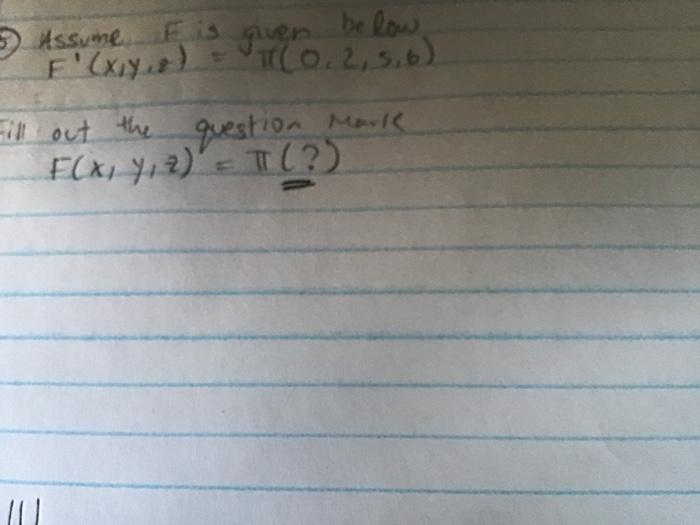 5) Assume F is given below
F'(x,y,z) = π(0,2,5,6)
Fill out the question mark
F(x, y, z) = π(?)